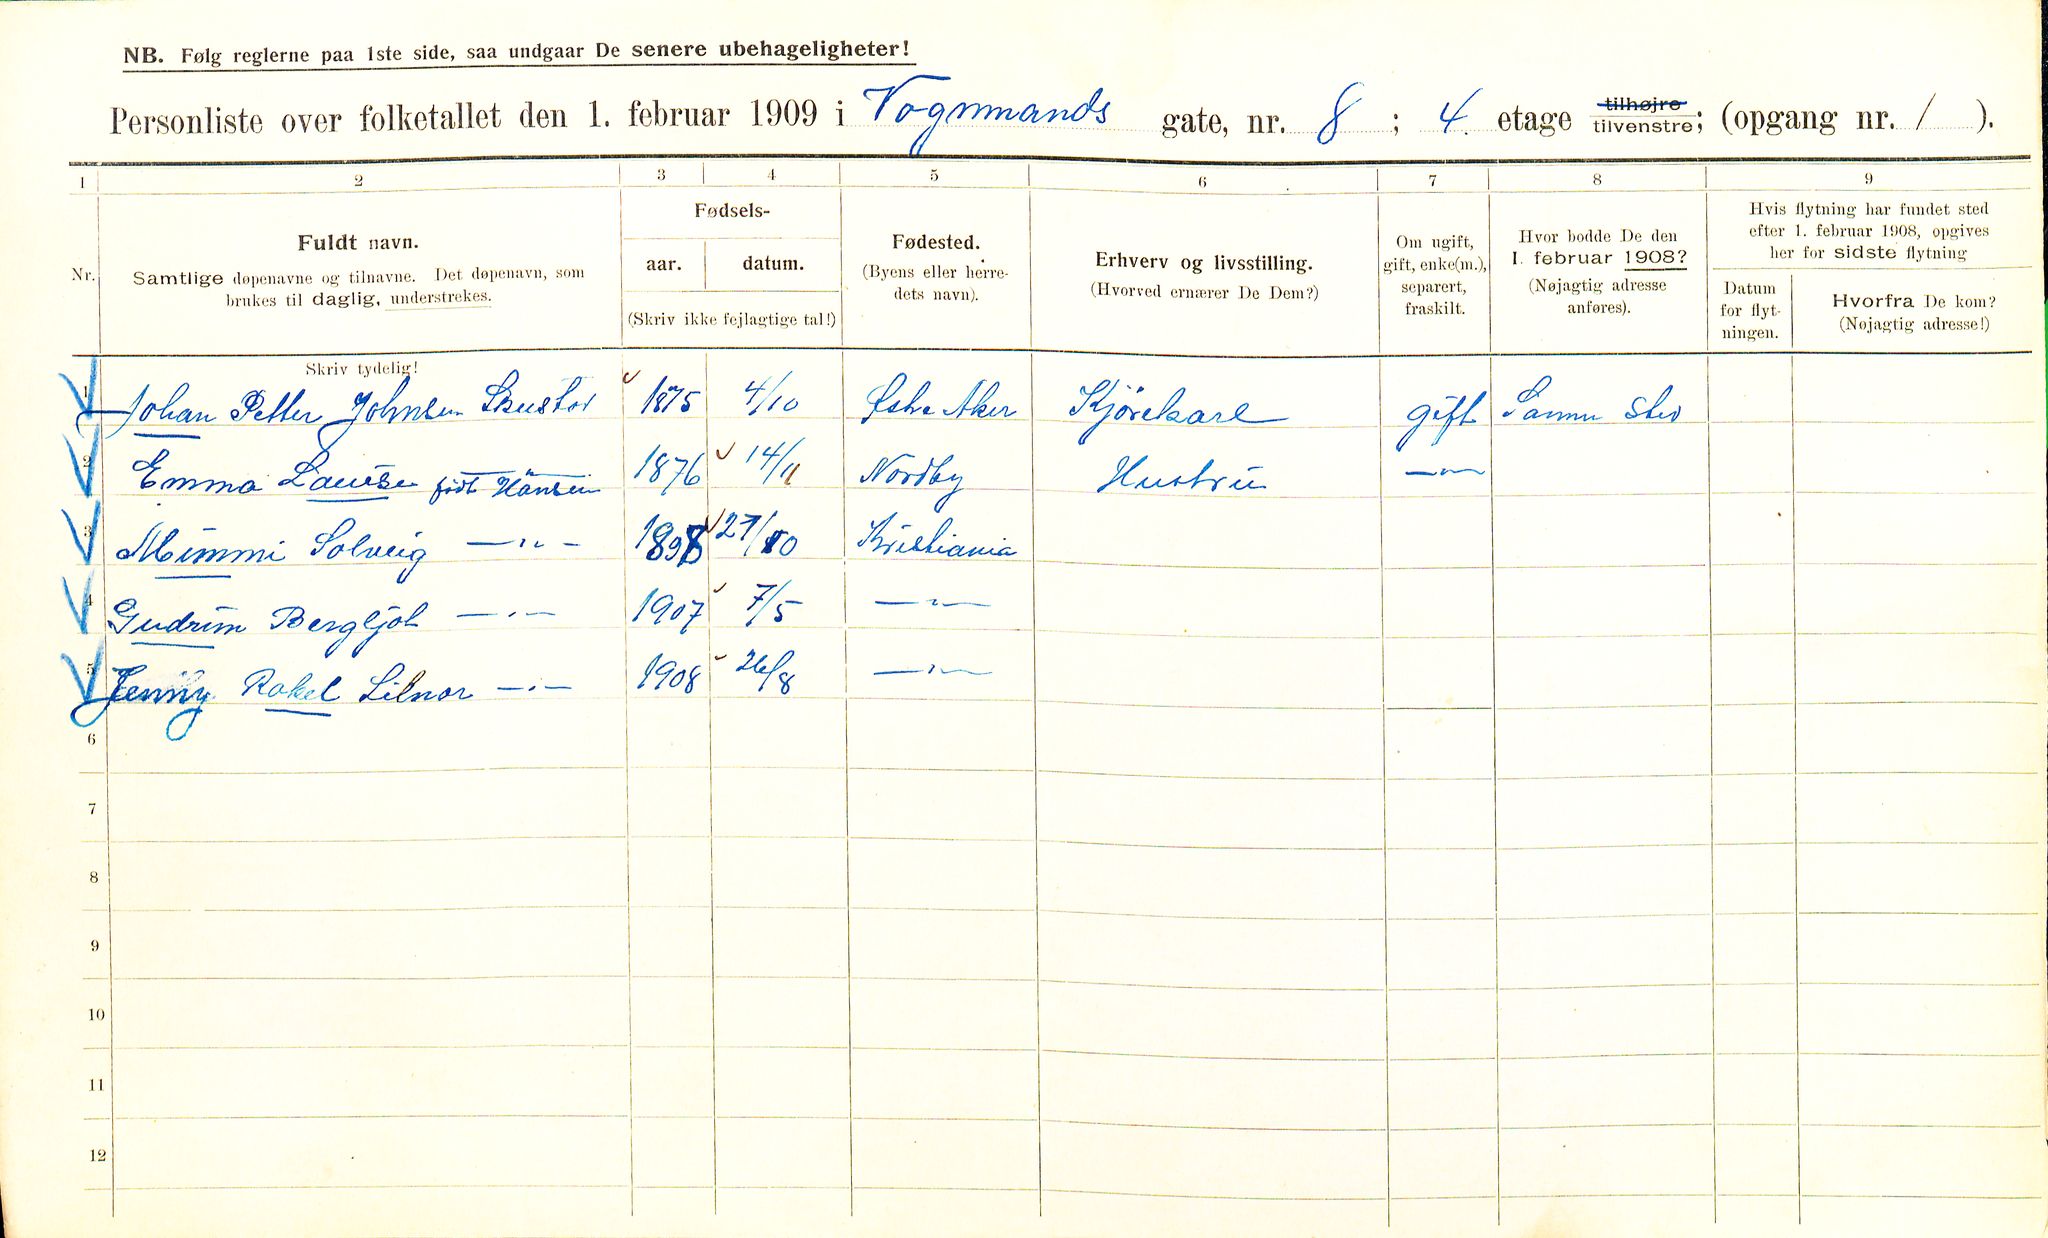 NB. Følg reglerne paa 1ste side, saa undgaar De senere ubehageligheter!
Personliste over folketallet den 1. februar 1909 i Vognmands gate, nr. 8 ; 4. etage tilhøjre tilvenstre; (opgang nr. 1 ).
1 2 3 4 5 6 7 8 9
Nr.
Fuldt navn.
Samtlige døpenavne og tilnavne. Det døpenavn, som
brukes til daglig, understrekes.
Fødsels-
aar. datum.
(Skriv ikke fejlagtige tal!)
Fødested.
(Byens eller herre-
dets navn).
Erhverv og livsstilling.
(Hvorved ernærer De Dem?)
Om ugift,
gift, enke(m.),
separert,
fraskilt.
Hvor bodde De den
1. februar 1908?
(Nøjagtig adresse
anføres).
Hvis flytning har fundet sted
efter 1. februar 1908, opgives
her for sidste flytning
Datum
for flyt-
ningen.
Hvorfra De kom?
(Nøjagtig adresse!)
Skriv tydelig!
1 Johan Petter Johnsen 1875 4/10 Østre Aker Kjörekarl gift Samme Sted
2 Emma Louise født Hansen 1876 14/11 Nordby Hustru —"—
3 Mimmi Solveig —"— 1898 27/10 Kristiania
4 Gudrun Bergljot —"— 1907 7/5 —"—
5 Jenny Rakel —"— 1908 26/8 —"—
6
7
8
9
10
11
12